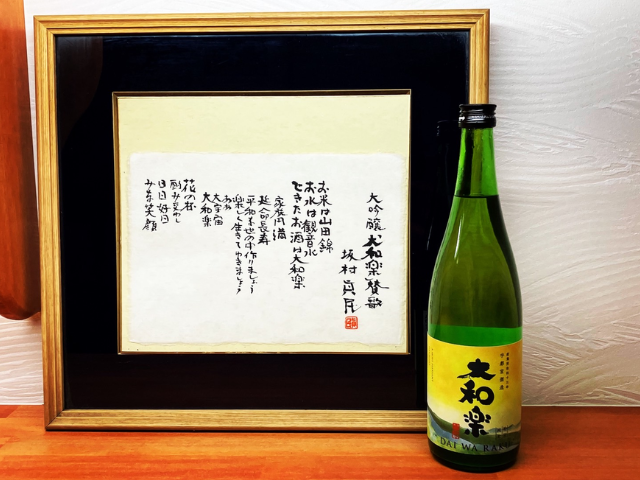 大吟醸「大和楽」賛歌
坂村真民
お米は山田錦
お水は観音水
できたお酒は大和楽
家庭円満
延命長寿
平和な世の中作りましょう
楽しく生きてゆきましょう
ああ
大宇宙
大和楽
花の村
刻みよかわし
日日好日
みな笑顔
大和楽
DAI WA RAKU